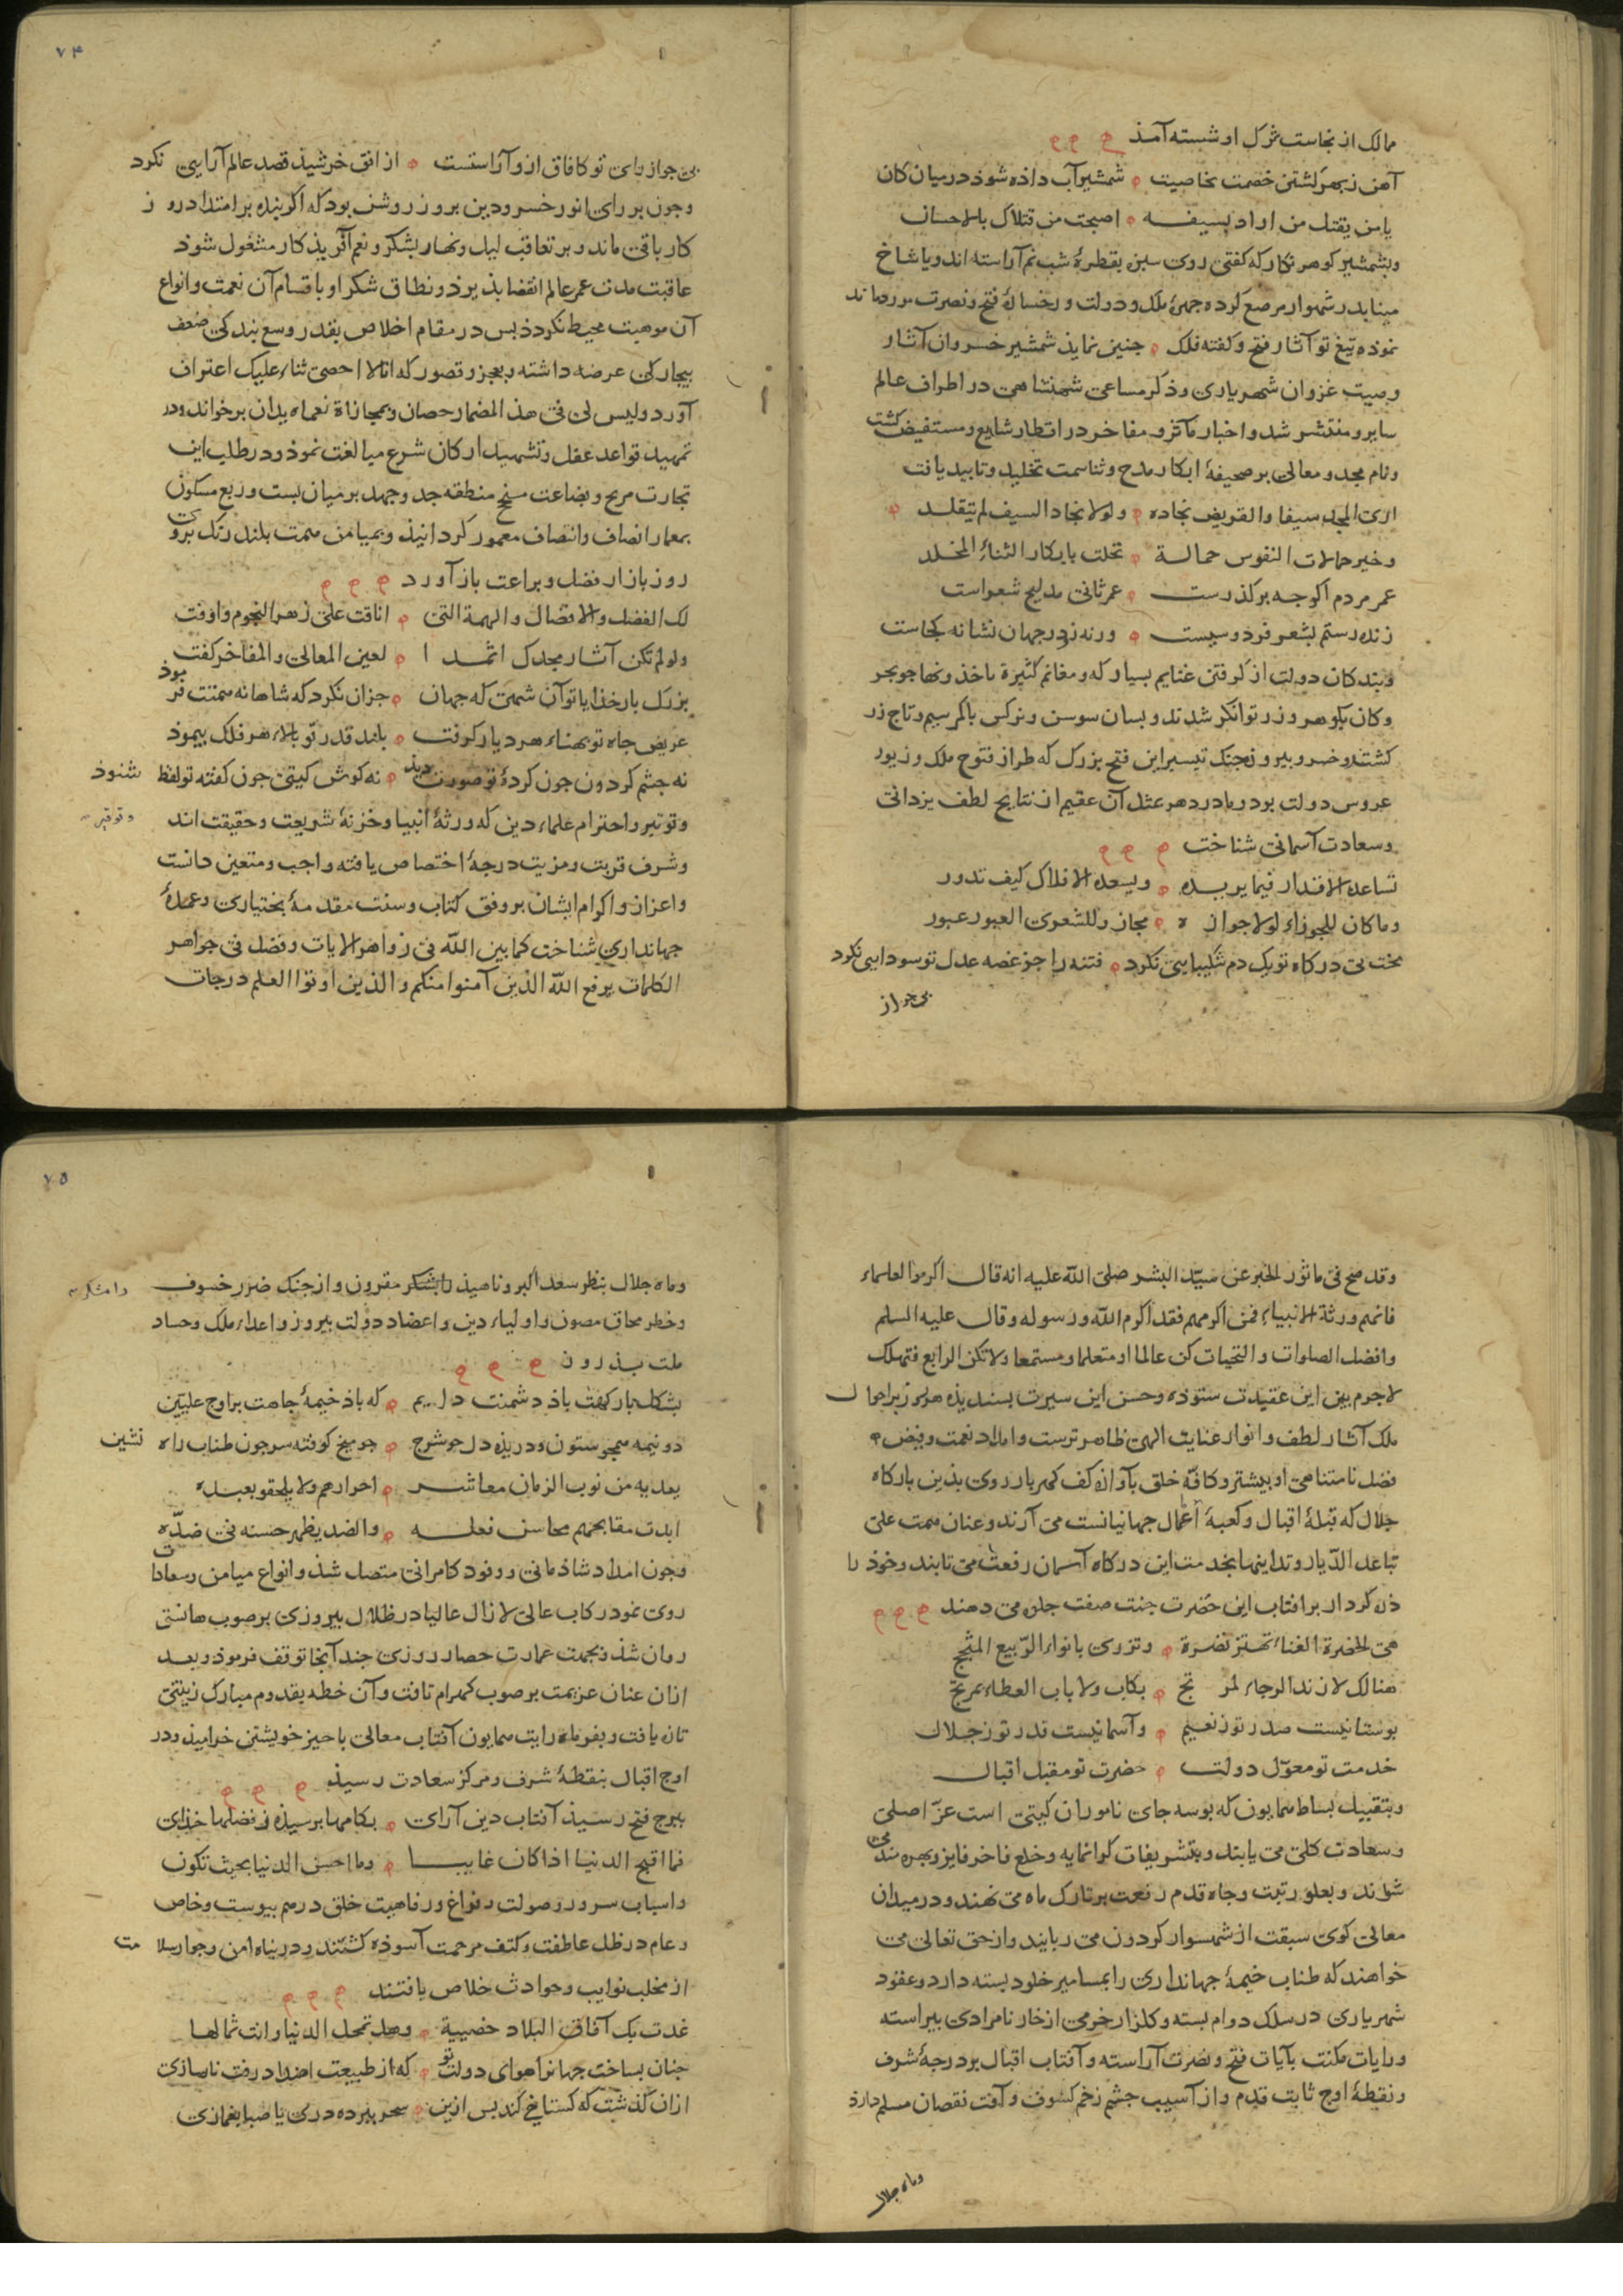 ممالک از نجاست شرک او شسته آمذ
آهن ز بهر کشتن خصمت بخاصیت شمشیر آب داذه شوذ در میان کان
یا من یقتل من اراد بسیفه اصبحت من قتلاک بالاحسان
وبشمشیر کوهر نکار که کفتی روی سبزه بقطرهٔ شب نم آراسته اند ویا شاخ
مینا بدر شهوار مرصع کرده جهرهٔ ملک ودولت ورخسارهٔ فتح ونصرت
نموده تیغ تو آثار فتح وکفته فلک جنین نماید شمشیر خسروان آثار
وصیت غزوان شهریاری وذکر مساعی شهنشاهی در اطراف عالم
سایر ومنتشر شد واخبار مآثر ومفاخر در اقطار شایع ومستفیض کشت
ونام مجد ومعالی بر صحیفهٔ ابکار مدح وثنا سمت تخلید وتابید یافت
اری المجد سیفا والقریض نجاده ولولا نجاد السیف لم یتقلد
وخیر حمالات النفوس حمالة تحلت بابکار الثناء المخلد
عمر مردم اکرجه بر کذرست عمر ثانی مدایح شعراست
زنده رستم بشعر فردوسیست ورنه زو در جهان نشانه کجاست
وبندکان دولت از کرفتن غنایم بسیار که ومغانم کثیرة یاخذونها جو بحر
وکان بکوهر وزر توانکر شدند وبسان سوسن ونرکس با کمر سیم وتاج زر
کشتند وخسرو بیروزجنک تیسیر این فتح بزرک که طراز فتوح ملک وزیور
عروس دولت بود ومادر دهر بمثل آن عقیم از نتایج لطف یزدانی
وسعادت آسمانی شناخت
تساعده الاقدار فیما یریده ویسعده الافلاک کیف تدور
وما کان للجوزاء لولا جوازه مجاز وللشعری العبور عبور
بخت بی درکاه تو یک دم شکیبایی نکرد فتنه را جز غصه عدل تو سودایی نکرد
بی جواز
۷۴
بی جواز رای تو کافاق ازو آراستست از افق خرشید قصد عالم آرایی نکرد
وجون بر رای انور خسرو دین بروز روشن بود که اکر بنده بر امتداد روز
کار باقی ماند وبر تعاقب لیل ونهار بشکر ونعم آفریذکار مشغول شوذ
عاقبت مدت عمر عالم انقضا بذیرذ ونطاق شکر او باقسام آن نعمت وانواع
آن موهبت محیط نکردذ بس در مقام اخلاص بقدر وسع بندکی ضعف
بیجارکی عرضه داشته وبعجز وقصور که انا لا احصی ثناء علیک اعتراف
آورد ولیس لی فی هذا المضمار حصان وبمجازاة نعماه یدان برخواند ودر
تمهید قواعد عقل وتشیید ارکان شرع مبالغت نموذ ودر طلب این
تجارت مربح وبضاعت منجح منطقه جد وجهد بر میان بست وربع مسکون
بمعمار انصاف وانتصاف معمور کردانیذ وبمیامن همت بلند رنک برو
روز بازار فضل وبراعت باز آورد
لک الفضل والافضال والهمة التی انافت علی زهر النجوم واوفت
ولو لم تکن آثار مجدک اثمدا لعین المعالی والمفاخر کفت
بزرک بار خذایا تو آن شهی که جهان جزان نکرد که شاهانه همتت فرموذ
عریض جاه تو بهناء هر دیار کرفت بلند قدر تو بالاء هر فلک بیموذ
نه جشم کردون جون کردهٔ تو صورت دید نه کوش کیتی جون کفته تو لفظ شنوذ
وتوقیر واحترام علماء دین که ورثهٔ انبیا وخزنهٔ شریعت وحقیقت اند وتوقیر
وشرف قربت ومزیت درجهٔ اختصاص یافته واجب ومتعین دانست
واعزاز واکرام ایشان بر وفق کتاب وسنت مقدمهٔ بختیاری وعمدهٔ
جهانداری شناخت کما بین الله فی زواهر الایات وفضل فی جواهر
الکلمات یرفع الله الذین آمنوا منکم والذین اوتوا العلم درجات
وقد صح فی ماثور الخبر عن سید البشر صلی الله علیه انه قال اکرموا العلماء
فانهم ورثة الانبیاء فمن اکرمهم فقد اکرم الله ورسوله وقال علیه السلم
وافضل الصلوات والتحیات کن عالما او متعلما ومستمعا ولا تکن الرابع فتهلک
لاجرم بیمن این عقیدت ستوذه وحسن این سیرت بسندیذه هر روز بر احوال
ملک آثار لطف وانوار عنایت الهی ظاهر ترست وامداد نعمت وفیض
فضل نامتناهی او بیشتر وکافّه خلق بآوازه کف کهربار روی بذین بارکاه
جلال که قبلهٔ اقبال وکعبهٔ آمال جهانیانست می آرند وعنان همت علی
تباعد الدیار وتداینها بخدمت این درکاه آسمان رفعت می تابند وخوذ را
ذره کردار بر افتاب این حضرت جنت صفت جلوه می دهند
هی الحضرة الغناء تهتز نضرة وتزری بانواء الربیع المثجج
هنالک لا زند الرجاء لمرتج بکاب ولا باب العطاء بمرتج
بوستانیست صدر تو ز نعیم وآسمانیست قدر تو ز جلال
خدمت تو معوّل دولت حضرت تو مقبل اقبال
وبتقبیل بساط همایون که بوسه جای ناموران کیتی است عزّ اصلی
وسعادت کلی می یابند وبتشریفات کرانمایه وخلع فاخر فایز وبهره مند می
شوند وبعلو رتبت وجاه قدم رفعت بر تارک ماه می نهند ودر میدان
معالی کوی سبقت از شهسوار کردون می ربایند واز حق تعالی می
خواهند که طناب خیمهٔ جهانداری را بمسامیر خلود بسته دارد وعقود
شهریاری در سلک دوام بسته وکلزار خرمی از خار نامرادی بیراسته
ورایات مکنت بآیات فتح ونصرت آراسته وآفتاب اقبال بر درجهٔ شرف
ونقطهٔ اوج ثابت قدم واز آسیب جشم زخم کسوف وآفت نقصان مسلم دارد
وماه جلال
۷۵
وماه جلال بنظر سعد اکبر وناهیذ رامشکر مقرون واز جنک ضرر خسوف رامشکر
وخطر محاق مصون واولیاء دین واعضاد دولت بیروز واعداء ملک وحساد
ملت بذرون
بشکل بار کهفت باذ دشمنت دایم که باذ خیمهٔ جاهت بر اوج علیین
دو نیمه همجو ستون ودریذه دل جو شرج جو میخ کوفته سر جون طناب راه نشین
یعدیه من نوب الزمان معاشر احرارهم ولا یلحقو بعبده
ابدت مقابحهم محاسن فعله والضد یظهر حسنه فی ضدّه
وجون امداد شاذمانی ووفود کامرانی متصل شذ وانواع میامن وسعادات
روی نمود رکاب عالی لازال عالیا در ظلال بیروزی بر صوب هانسی
روان شذ وبجهت عمارت حصار روزی جند آنجا توقف فرموذ وبعد
ازان عنان عزیمت بر صوب کهرام تافت وآن خطه بقدوم مبارک زینتی
تازه یافت وبفر ماه رایت همایون آفتاب معالی باحیز خویشتن خرامیذ ودر
اوج اقبال بنقطهٔ شرف ومرکز سعادت رسیذ
ببرج فتح رسیذ آفتاب دین آرای بکامها برسیذه ز فضلهاء خذای
فما اقبح الدنیا اذا کان غایبا وما احسن الدنیا بحیث تکون
واسباب سرور وصولت وفراغ ورفاهیت خلق در هم بیوست وخاص
وعام در ظل عاطفت وکنف مرحمت آسوذه کشتند ودر بناه امن وجوار سلامت
از مخلب نوایب وحوادث خلاص یافتند
غدت بک آفاق البلاد خضیبة وهل تمحل الدنیا وانت ثمالها
جنان بساخت جهانرا هوای دولت تو که از طبیعت اضداد رفت ناسازی
ازان کذشت که کستاخ کند بس ازین سحر ببرده دری یا صبا بغمازی